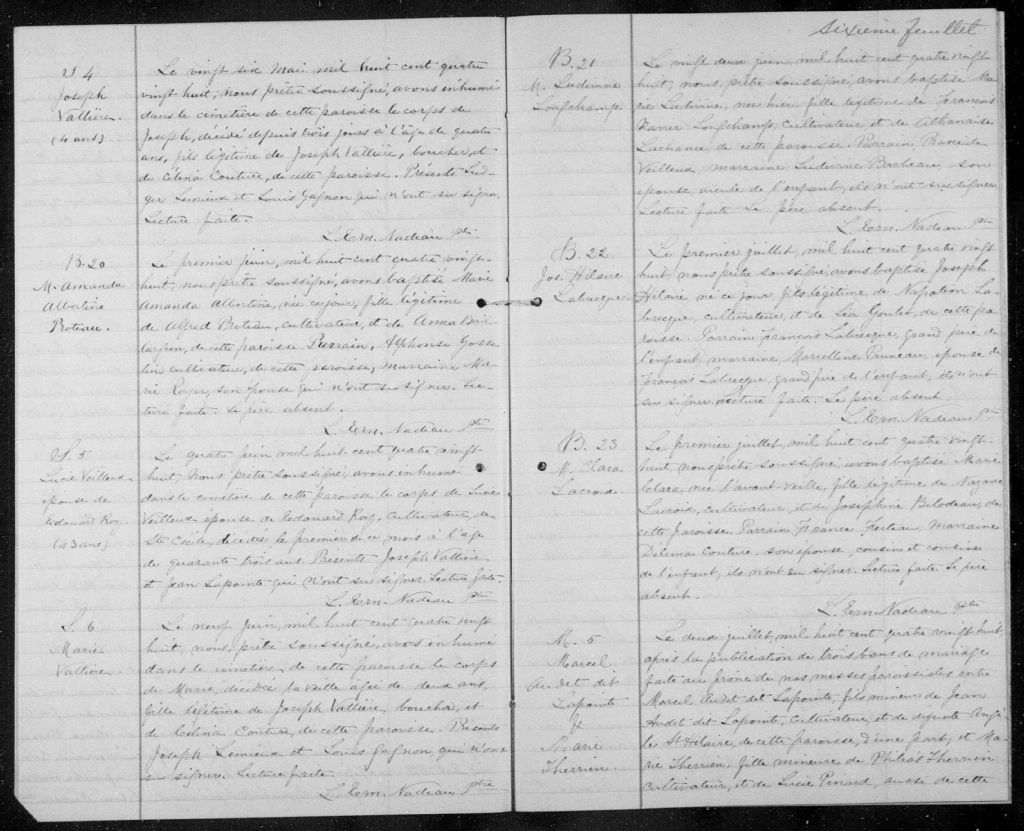 S 4
Joseph
Vallière
(4 ans)
Le vingt six Mai mil huit cent quatre
vingt huit, nous, prêtre soussigné, avons inhumé
dans le cimetière de cette paroisse le corps de
Joseph, décédé depuis trois jours à l'âge de quatre
ans, fils légitime de Joseph Vallière, boucher, et
de Célina Couture, de cette paroisse. Présents Lud-
ger Lemieux et Louis Gagnon qui n'ont su signer.
Lecture faite.
L. Em. Nadeau ptre
B. 20
M. Amanda
Albertine
Proteau.
Le premier juin, mil huit cent quatre vingt-
huit, nous prêtre soussigné, avons baptisé Marie
Amanda Albertine, née ce jour, fille légitime
de Alfred Proteau, cultivateur, et de Anna Bail-
largeon, de cette paroisse. Parrain, Alphonse Gosse-
lin cultivateur, de cette paroisse, marraine Ma-
rie Roya, son épouse qui n'ont su signer. Lec-
ture faite. Le père absent.
L. Em. Nadeau ptre
S. 5
Lucie Veilleux
épouse de
Edouard Roy
(43 ans)
Le quatre juin mil huit cent quatre vingt
huit, Nous prêtre soussigné, avons inhumé
dans le cimetière de cette paroisse le corps de Lucie
Veilleux épouse de Edouard Roy, cultivateur, de
Ste Cécile, décédée le premier de ce mois à l'âge
de quarante trois ans. Présents Joseph Vallière,
et Jean Lapointe qui n'ont su signer. Lecture faite.
L. Em. Nadeau ptre
S. 6
Marie
Vallière.
Le neuf juin, mil huit cent quatre vingt
huit, nous, prêtre soussigné, avons inhumé
dans le cimetière, de cette paroisse le corps
de Marie, décédée la veille âgée de deux ans,
fille légitime de Joseph Vallière, boucher, et
de Célina Couture, de cette paroisse. Présents
Joseph Lemieux et Louis Gagnon, qui n'ont
su signer. Lecture faite
L. Em. Nadeau ptre
Sixième feuillet
B. 21
M. Ludivinne
Longchamp.
Le vingt deux juin, mil huit cent quatre vingt
huit, nous, prêtre soussigné, avons baptisé Ma-
rie Ludivine, née hier, fille légitime de François
Xavier Longchamp, cultivateur et de Athanaise
Lachance de cette paroisse. Parrain
Veilleux, marraine, Ludivine son
épouse, aieule de l'enfant, ils n'ont su signer,
Lecture faite. Le père absent.
L. Em. Nadeau ptre
B. 22
Jos. Hilaire
Labrecque.
Le premier juillet, mil huit cent quatre vingt
huit, nous prêtre soussigné, avons baptisé Joseph
Hilaire, né ce jour fils légitime de Napoléon La-
brecque, cultivateur, et de Léa Goulet, de cette pa-
roisse Parrain François Labrecque, grand père de
l'enfant, marraine, Marcelline Pruneau, épouse de
François Labrecque, grand père de l'enfant, ils n'ont
su signer. Lecture faite. Le père absent.
L. Em. Nadeau ptre
B. 23
M. Clara
Lacroix.
Le premier juillet, mil huit cent quatre vingt-
huit, nous prêtre soussigné avons baptisé Marie
Clara née l'avant-veille, fille légitime de Nazaire
Lacroix, cultivateur, et de Joséphine Bilodeau, de
cette paroisse. Parrain Marraine
Délima Couture, son épouse, cousin et cousine
de l'enfant, ils n'ont su signer. Lecture faite. Le père
absent.
L. Em. Nadeau ptre
M. 5
Marcel
Audet dit
Lapointe
&
Marie
Therrien.
Le deux juillet, mil huit cent quatre vingt huit,
après la publication de trois bans de mariage
faite au prone de nos messes paroissiales entre
Marcel Audet dit Lapointe, fils mineur de Jean
Audet dit Lapointe, cultivateur, et de défunte Angè-
le St Hilaire, de cette paroisse, d'une part, et Ma-
rie Therrien, fille mineure de Philéas Therrien
cultivateur, et de Lucie Pinard, aussi de cette